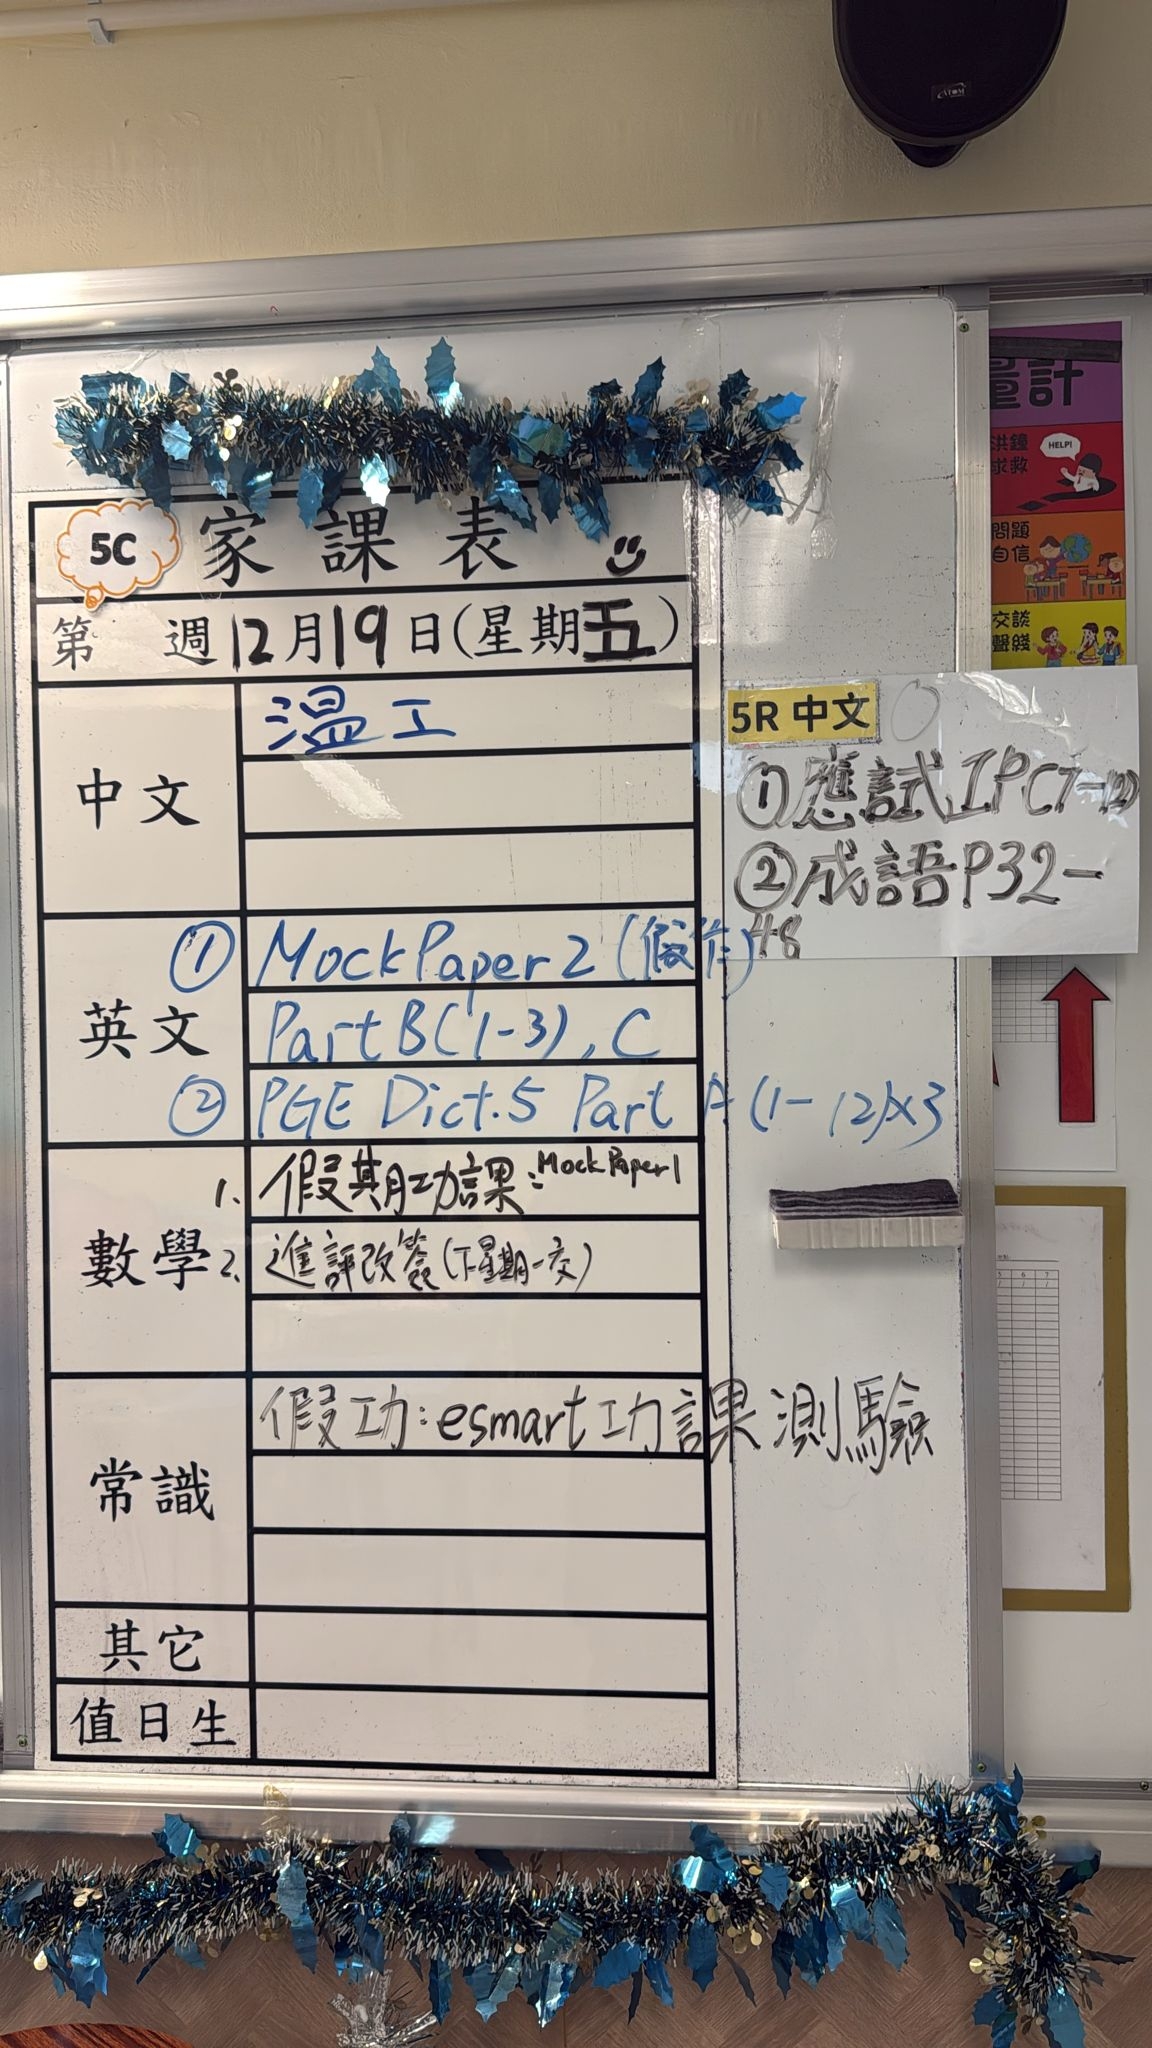 ATOM
量計
洪鐘
求救
HELP!
問題
自信
交談
聲綫
5C 家課表
第 週 12月19日(星期五)
中文
溫工
5R 中文
①應試工P(7-12)
②成語P32-
48
英文
① Mock Paper 2 (假作)
Part B(1-3), C
② PGE Dict.5 Part A (1-12)x3
數學
1. 假期功課:Mock Paper 1
2. 進評改簽(下星期一交)
常識
假功:esmart功課測驗
其它
值日生
5 6 7